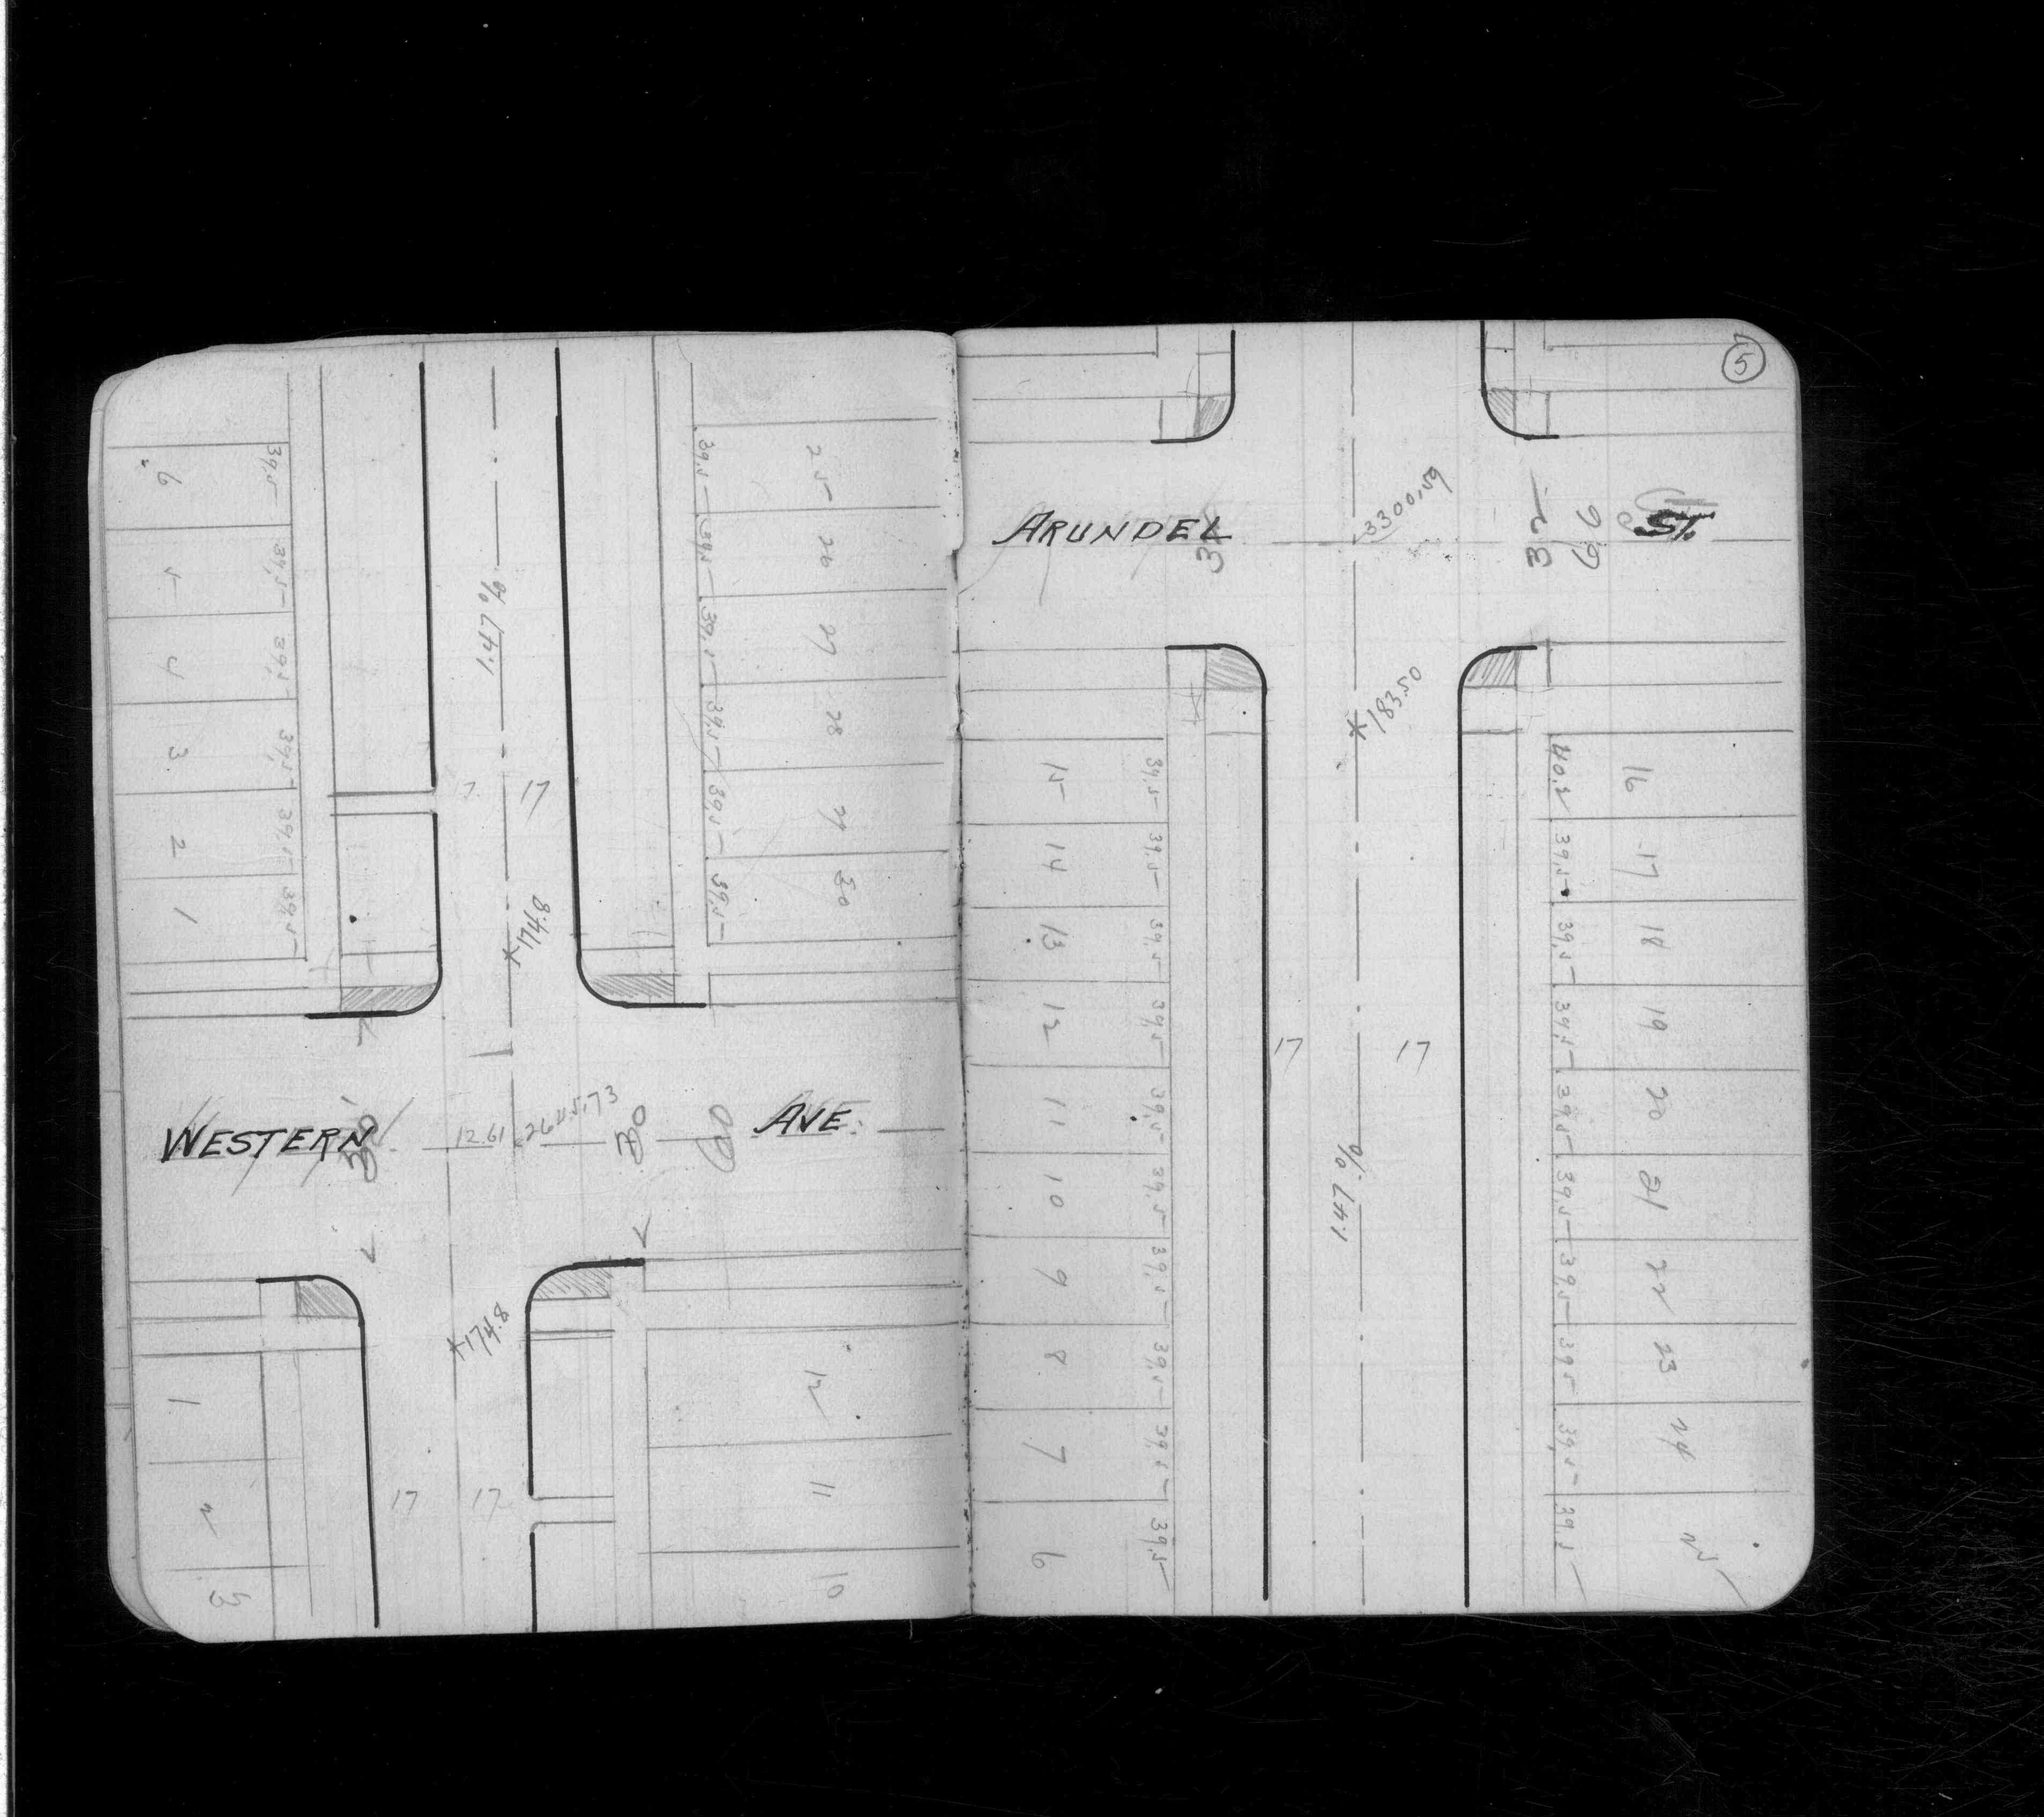 6
39.5
5
39.5
4
39.5
3
39.5
2
39.5
1
39.5
1.47%
17
*174.8
39.5
25
39.5
26
39.5
27
39.5
28
39.5
29
39.5
30
WESTERN
30
12.61
2645.73
30
60
AVE.
*174.8
1
2
3
17
17
12
11
10
5
ARUNDEL
32
3300.59
32
66
ST.
*183.50
15
39.5
14
39.5
13
39.5
12
39.5
11
39.5
10
39.5
9
39.5
8
39.5
7
39.5
6
39.5
17
17
1.47%
40.2
16
39.5
17
39.5
18
39.5
19
39.5
20
39.5
21
39.5
22
39.5
23
39.5
24
39.5
25